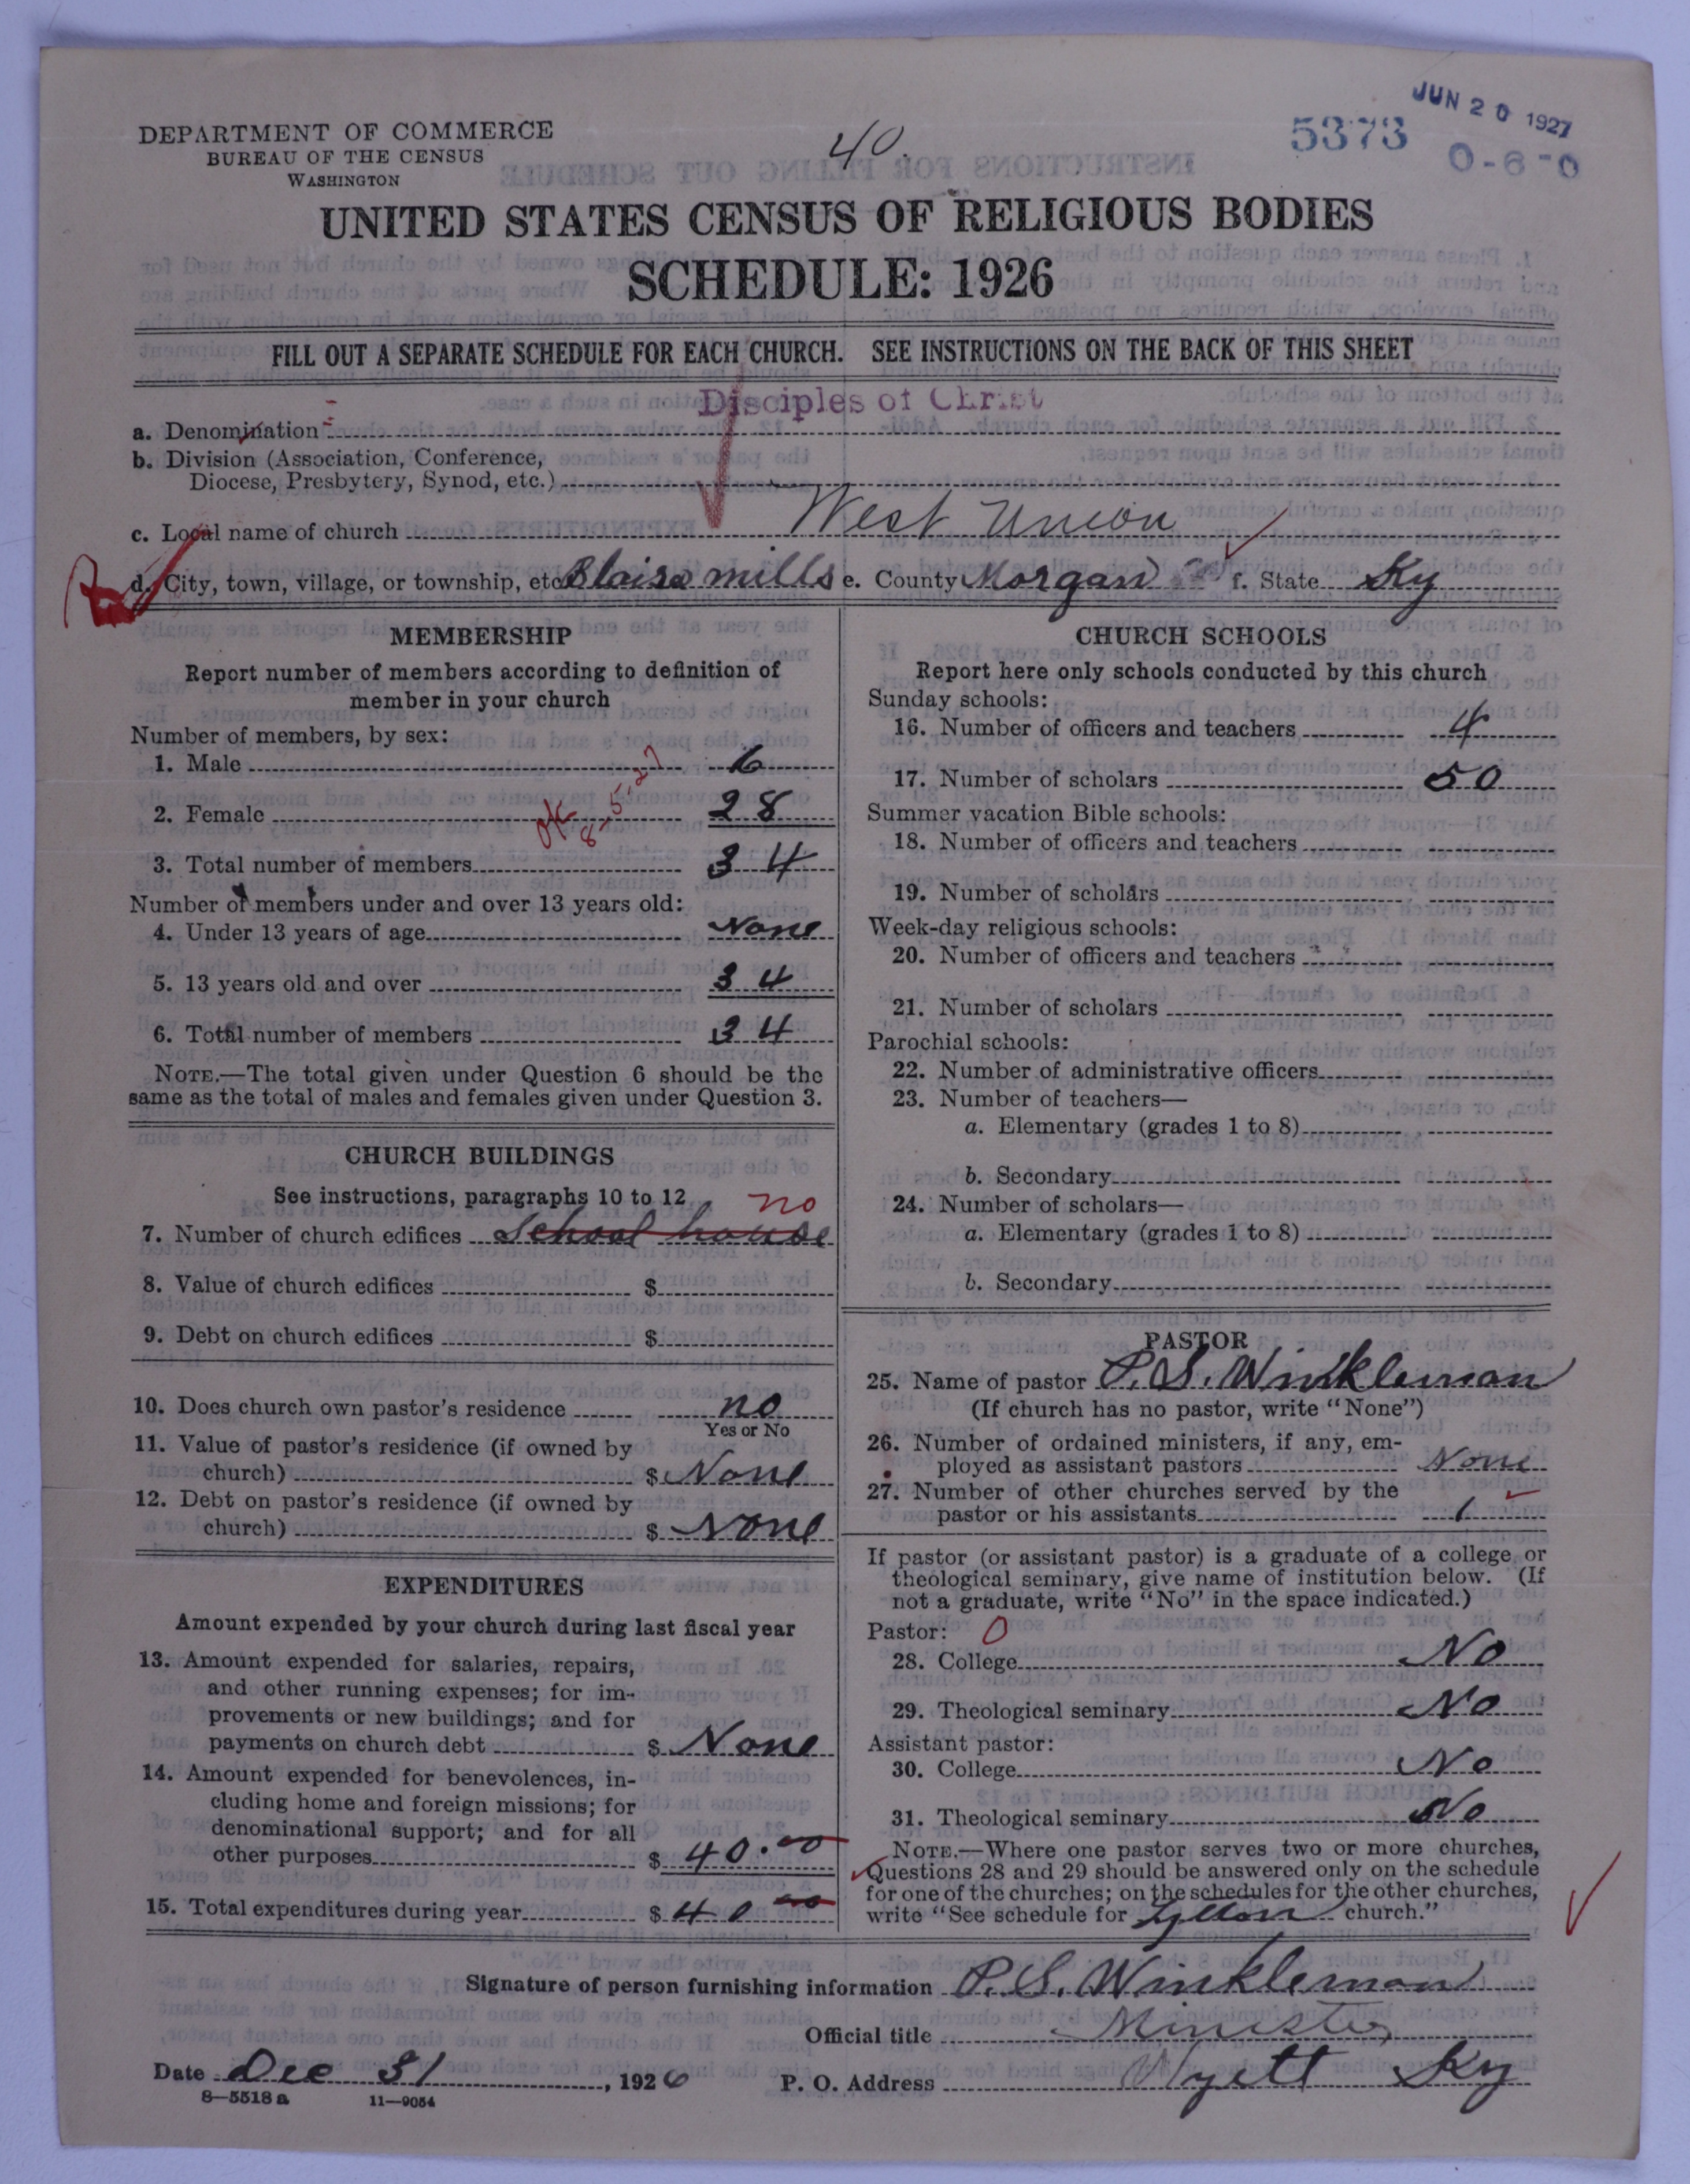 DEPARTMENT OF COMMERCE
BUREAU OF THE CENSUS
WASHINGTON
40.
5373
JUN 20 1927
0-6-0
UNITED STATES CENSUS OF RELIGIOUS BODIES
SCHEDULE: 1926
FILL OUT A SEPARATE SCHEDULE FOR EACH CHURCH. SEE INSTRUCTIONS ON THE BACK OF THIS SHEET
Disciples of Christ
a. Denomination
b. Division (Association, Conference,
Diocese, Presbytery, Synod, etc.)
c. Local name of church West Union
d. City, town, village, or township, etc. Blairs mills e. County Morgan f. State Ky
MEMBERSHIP
Report number of members according to definition of
member in your church
Number of members, by sex:
1. Male 6
2. Female 28
OK
8-5-27
3. Total number of members 34
Number of members under and over 13 years old:
4. Under 13 years of age None
5. 13 years old and over 34
6. Total number of members 34
NOTE.—The total given under Question 6 should be the
same as the total of males and females given under Question 3.
CHURCH BUILDINGS
See instructions, paragraphs 10 to 12
no
7. Number of church edifices School house
8. Value of church edifices $
9. Debt on church edifices $
10. Does church own pastor's residence no
Yes or No
11. Value of pastor's residence (if owned by
church) $ None
12. Debt on pastor's residence (if owned by
church) $ None
EXPENDITURES
Amount expended by your church during last fiscal year
13. Amount expended for salaries, repairs,
and other running expenses; for im-
provements or new buildings; and for
payments on church debt $ None
14. Amount expended for benevolences, in-
cluding home and foreign missions; for
denominational support; and for all
other purposes $ 40.00
15. Total expenditures during year $ 40 00
CHURCH SCHOOLS
Report here only schools conducted by this church
Sunday schools:
16. Number of officers and teachers 4
17. Number of scholars 50
Summer vacation Bible schools:
18. Number of officers and teachers
19. Number of scholars
Week-day religious schools:
20. Number of officers and teachers
21. Number of scholars
Parochial schools:
22. Number of administrative officers
23. Number of teachers—
a. Elementary (grades 1 to 8)
b. Secondary
24. Number of scholars—
a. Elementary (grades 1 to 8)
b. Secondary
PASTOR
25. Name of pastor P. S. Winkleman
(If church has no pastor, write "None")
26. Number of ordained ministers, if any, em-
ployed as assistant pastors None
27. Number of other churches served by the
pastor or his assistants 1
If pastor (or assistant pastor) is a graduate of a college or
theological seminary, give name of institution below. (If
not a graduate, write "No" in the space indicated.)
Pastor: 0
28. College No
29. Theological seminary No
Assistant pastor:
30. College No
31. Theological seminary No
NOTE.—Where one pastor serves two or more churches,
Questions 28 and 29 should be answered only on the schedule
for one of the churches; on the schedules for the other churches,
write "See schedule for church."
Signature of person furnishing information P. S. Winkleman
Official title Minister
Date Dec 31, 1926 P. O. Address Wyett Ky
8—5518 a 11—9054